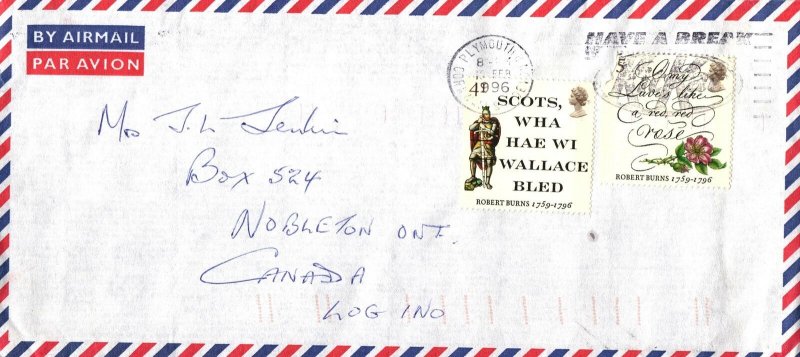 BY AIRMAIL
PAR AVION
PLYMOUTH
FEB
1996
HAVE A BREAK
41
SCOTS,
WHA
HAE WI
WALLACE
BLED
ROBERT BURNS 1759-1796
O my
Luve's like
a red, red
rose
ROBERT BURNS 1759-1796
Box 524
NOBLETON ONT.
CANADA
LOG INO